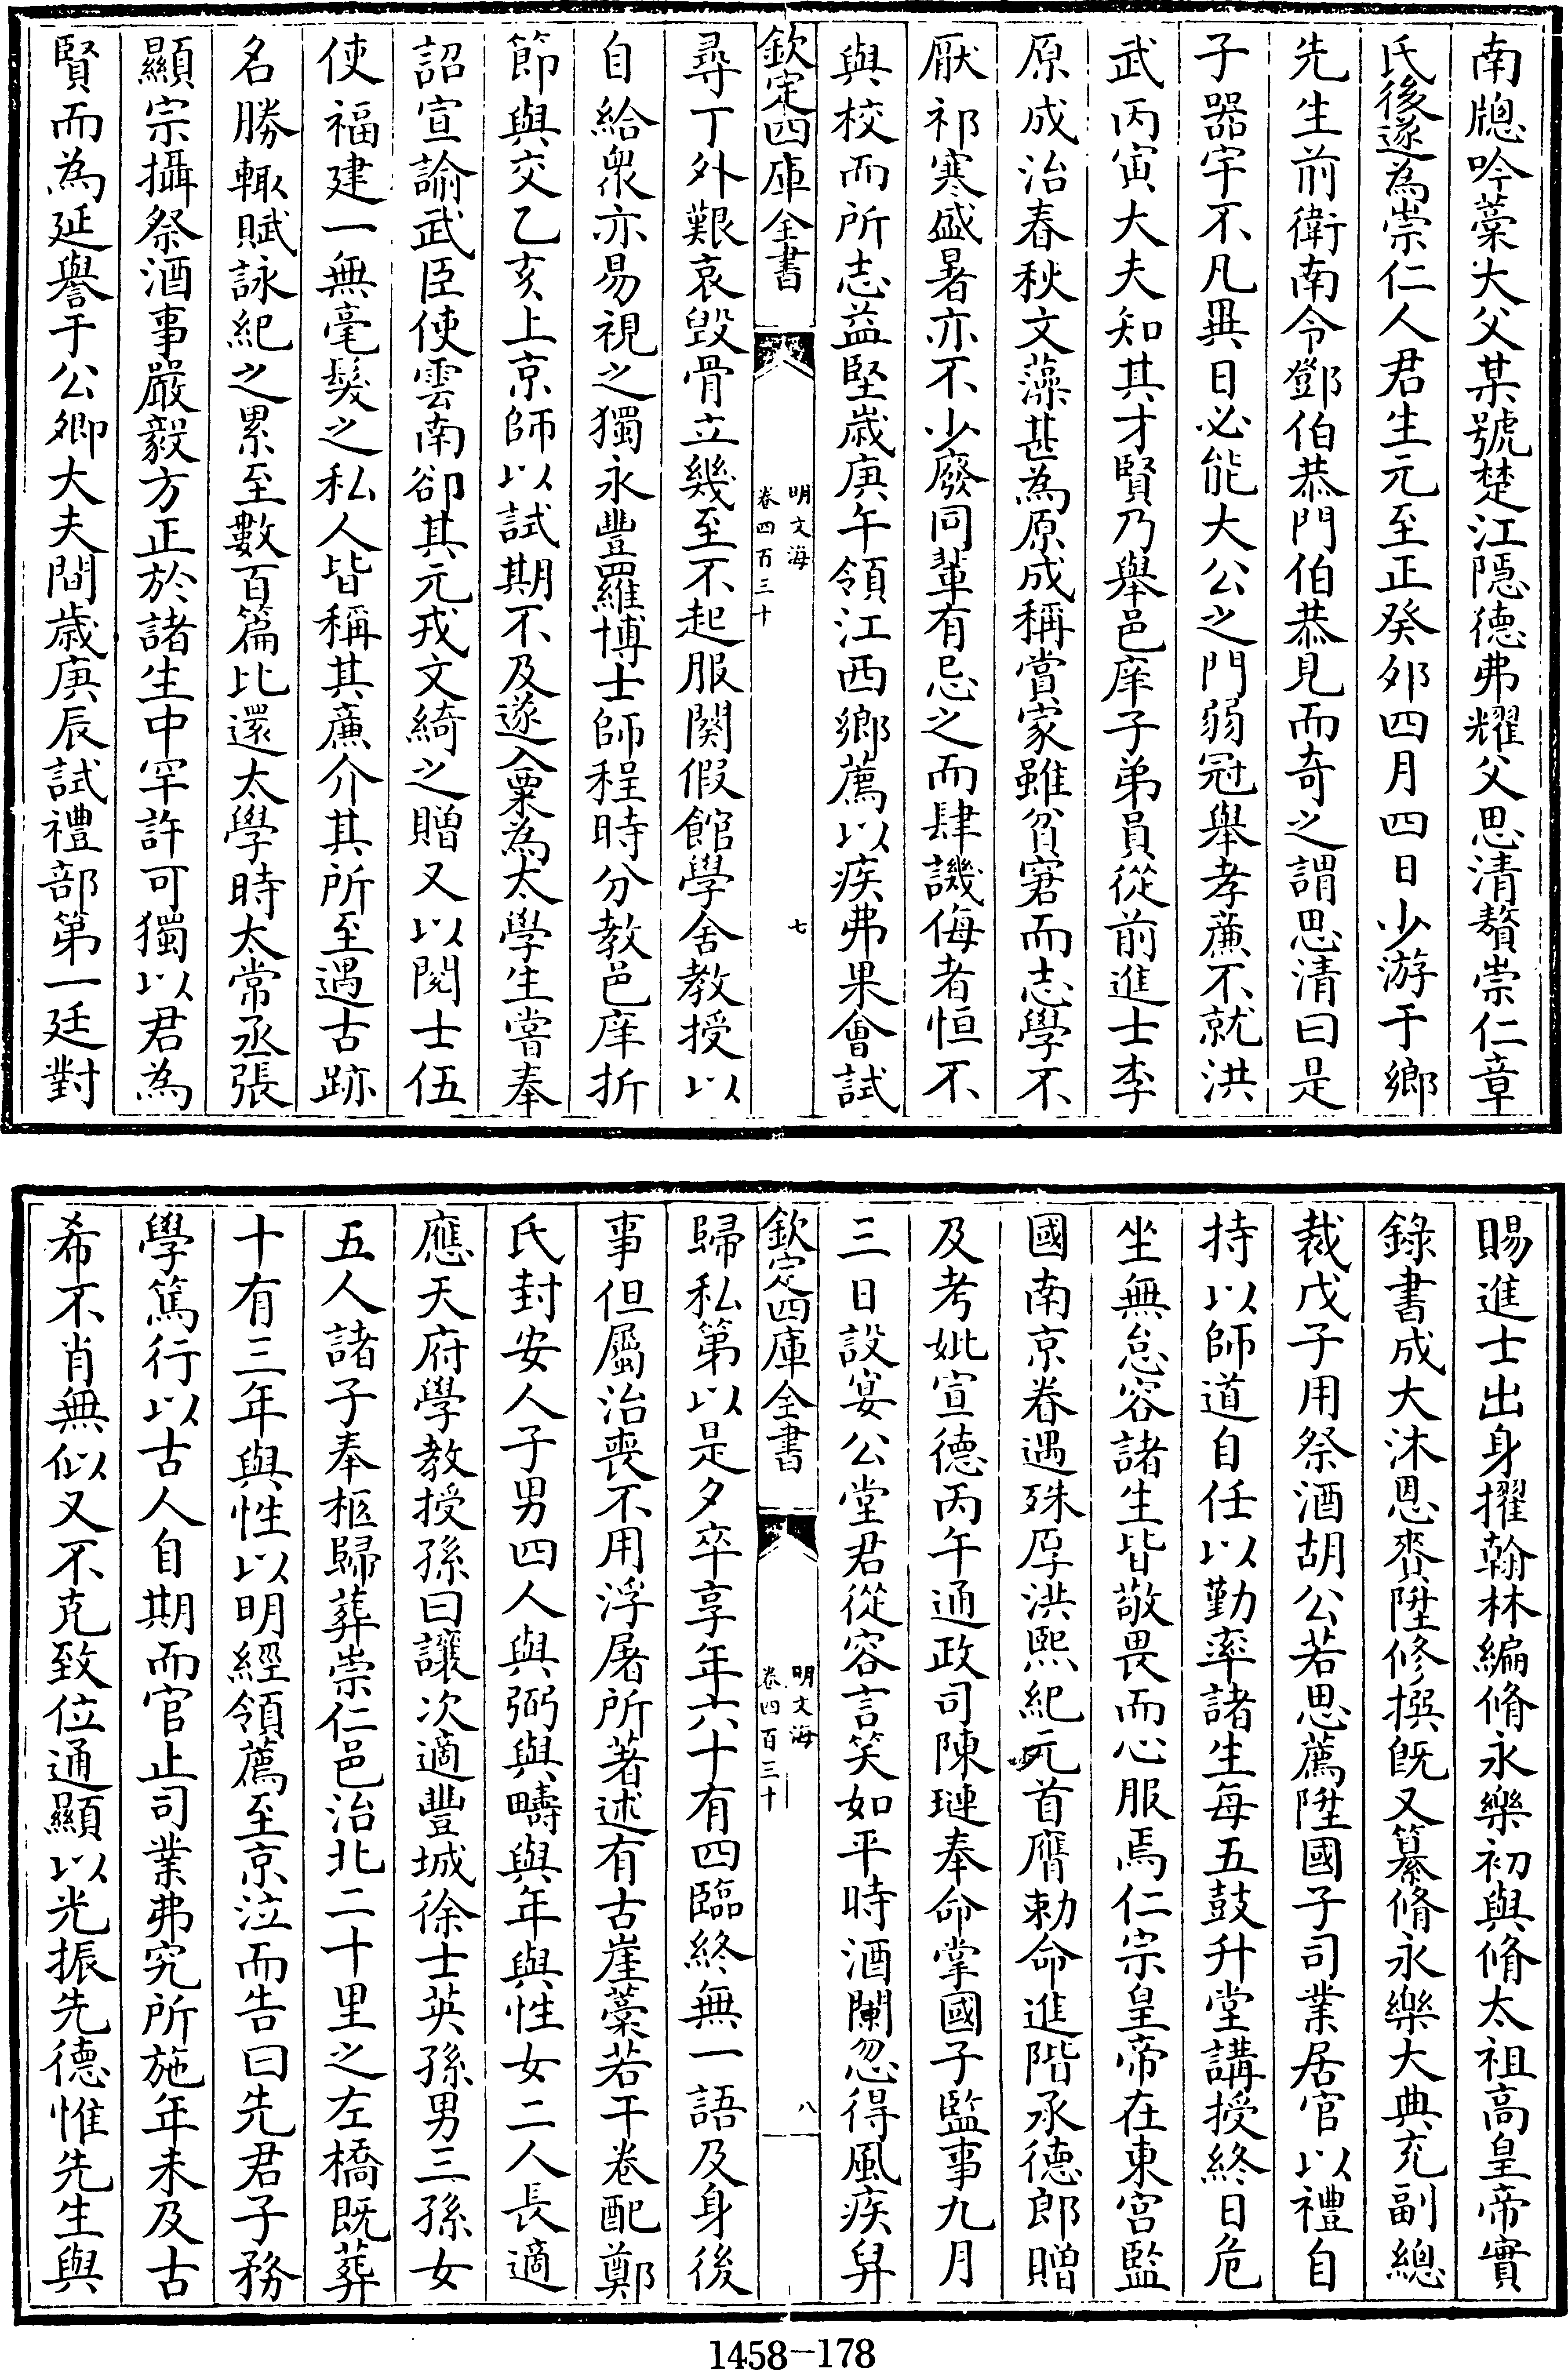 南牕吟藁大父某號楚江隱德弗耀父思清贅崇仁章
氏後遂為崇仁人君生元至正癸夘四月四日少游于鄉
先生前衛南令鄧伯恭門伯恭見而奇之謂思清曰是
子器宇不凡異日必能大公之門弱冠舉孝廉不就洪
武丙寅大夫知其才賢乃舉邑庠子弟員從前進士李
原成治春秋文藻甚為原成稱賞家雖貧窘而志學不
厭祁寒盛暑亦不少廢同軰有忌之而肆譏侮者恒不
與校而所志益堅歳庚午領江西鄉薦以疾弗果會試
欽定四庫全書
明文海
卷四百三十
七
尋丁外艱哀毀骨立幾至不起服闋假館學舍教授以
自給衆亦易視之獨永豐羅博士師程時分教邑庠折
節與交乙亥上京師以試期不及遂入粟為太學生嘗奉
詔宣諭武臣使雲南卻其元戎文綺之贈又以閱士伍
使福建一無毫髮之私人皆稱其廉介其所至遇古跡
名勝輙賦詠紀之累至數百篇比還太學時太常丞張
顯宗攝祭酒事嚴毅方正於諸生中罕許可獨以君為
賢而為延譽于公卿大夫間歳庚辰試禮部第一廷對
賜進士出身擢翰林編脩永樂初與脩太祖高皇帝實
錄書成大沐恩賚陞修撰既又纂脩永樂大典充副總
裁戊子用祭酒胡公若思薦陞國子司業居官以禮自
持以師道自任以勤率諸生每五鼓升堂講授終日危
坐無怠容諸生皆敬畏而心服焉仁宗皇帝在東宫監
國南京眷遇殊厚洪熙紀元首膺勅命進階承德郎贈
及考妣宣德丙午通政司陳璉奉命掌國子監事九月
三日設宴公堂君從容言笑如平時酒闌忽得風疾舁
欽定四庫全書
明文海
卷四百三十
八
歸私第以是夕卒享年六十有四臨終無一語及身後
事但屬治喪不用浮屠所著述有古崖藁若干卷配鄭
氏封安人子男四人與弼與疇與年與性女二人長適
應天府學教授孫曰讓次適豐城徐士英孫男三孫女
五人諸子奉柩歸葬崇仁邑治北二十里之左橋既葬
十有三年與性以明經領薦至京泣而告曰先君子務
學篤行以古人自期而官止司業弗究所施年未及古
希不肖無似又不克致位通顯以光振先德惟先生與
1458-178